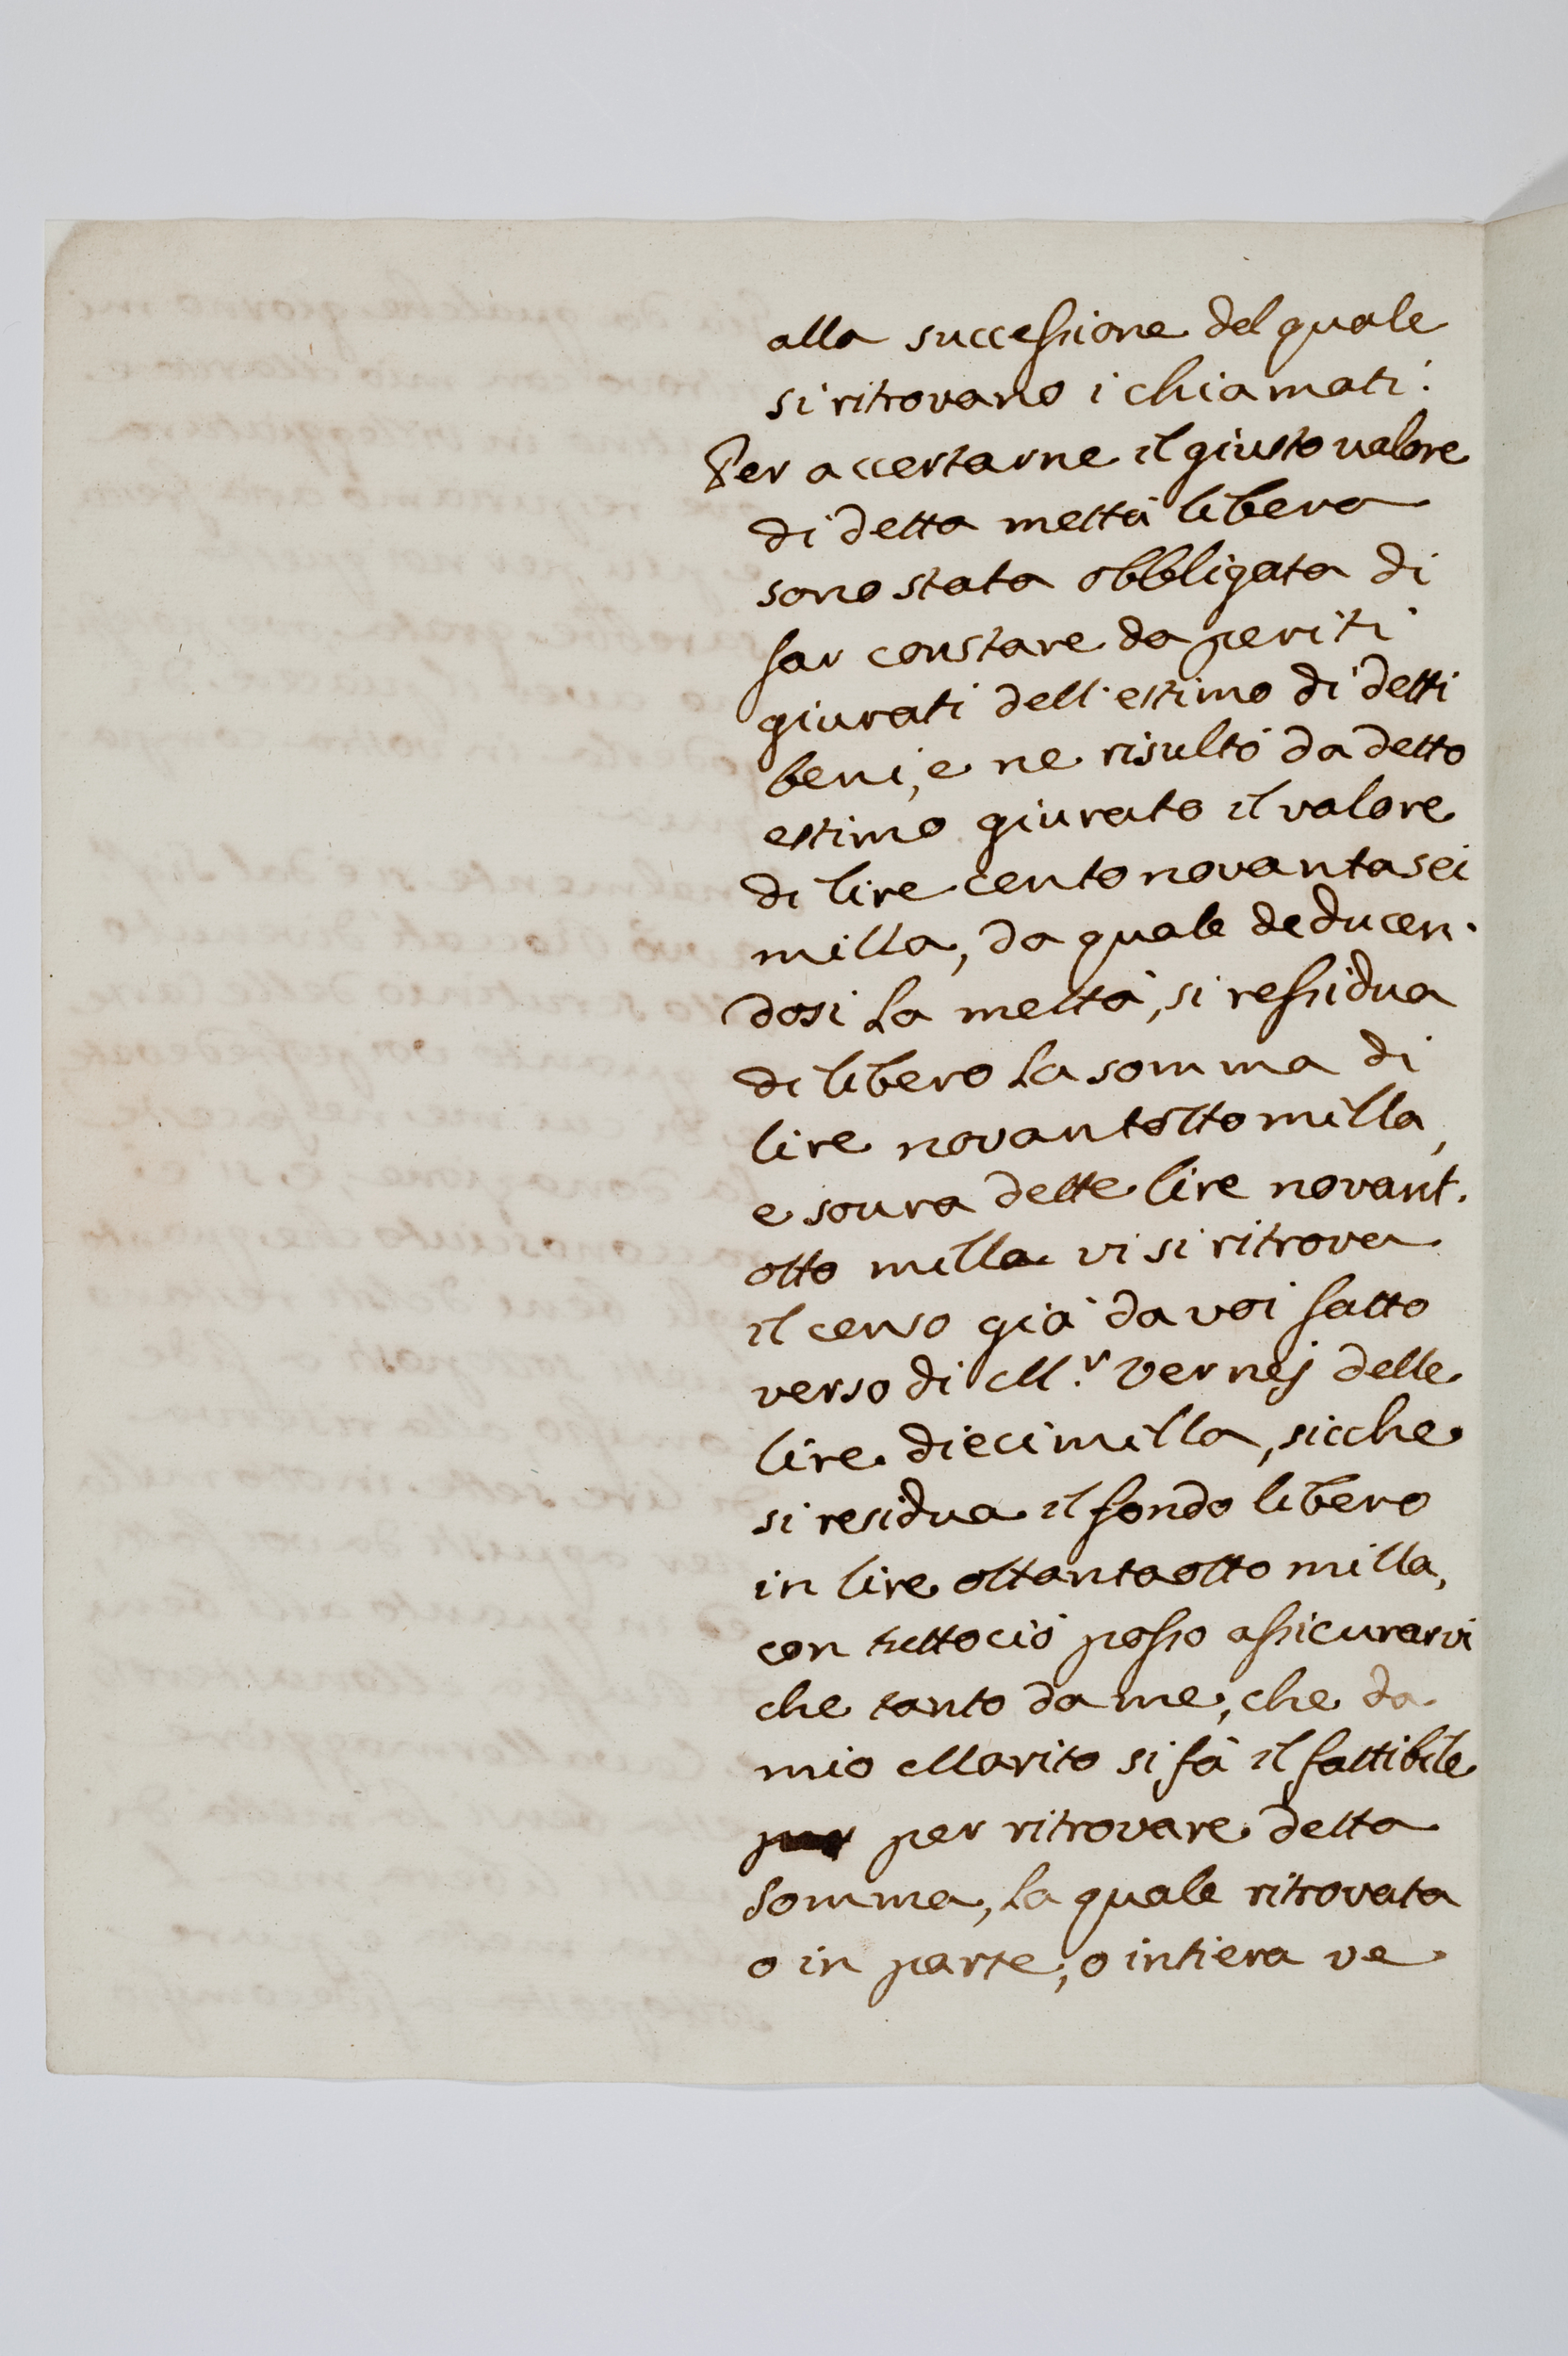 alla successione del quale
si ritrovano i chiamati.
Per accertarne il giusto valore
di detta mettà libera
sono stata obbligata di
far constare da periti
giurati dell'estimo di detti
beni, e ne risultò da detto
estimo giurato il valore
di lire cento novanta sei
milla, da quale deducen-
dosi la mettà, si ressidua
di libero la somma di
lire novantotto milla,
e soura dette lire novant-
otto milla vi si ritrova
il censo già da voi fatto
verso di M.r Vernej delle
lire diecimilla, sicche
si residua il fondo libero
in lire ottantaotto milla,
con tuttociò posso assicurarvi
che tanto da me, che da
mio Marito si fà il fattibile
per ritrovare detta
somma, la quale ritrovata
o in parte, o intiera ve